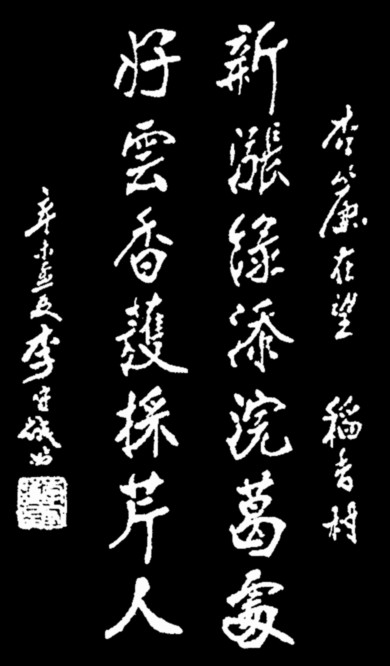 杏帘在望 稻香村
新漲綠添浣葛處
好雲香護採芹人
辛未孟夏 李守